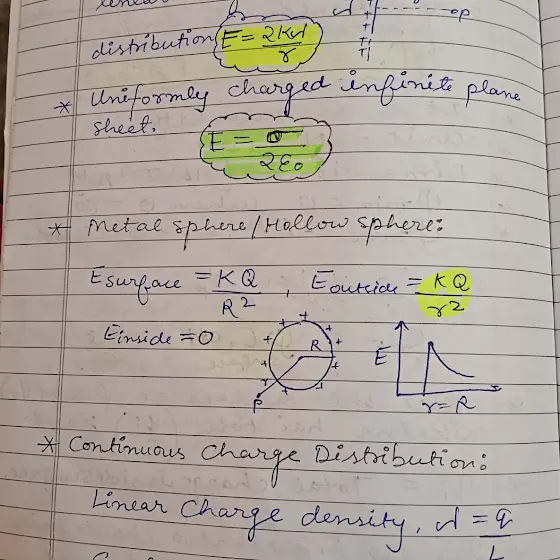 linear
op
distribution E = 2Kλ/r
* Uniformly charged infinite plane
sheet.
E = σ/2ε₀
* Metal sphere/Hollow sphere:
E surface = KQ/R² , E outside = KQ/r²
E inside = 0
R
r
P
E
r = R
* Continuous Charge Distribution:
Linear Charge density, λ = q/L